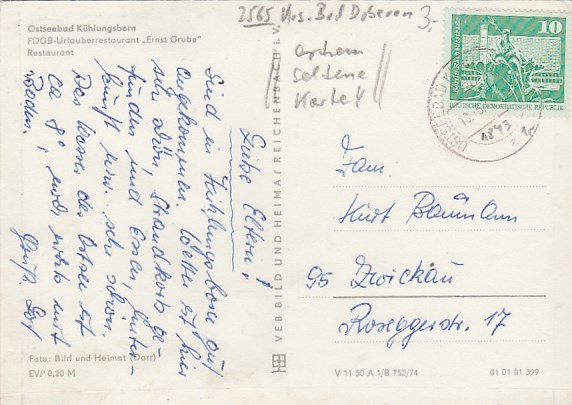 Ostseebad Kühlungsborn
FDGB-Urlauberrestaurant „Ernst Grube"
Restaurant
2565 Krs. Bad Doberan 3,-
extrem
seltene
Karte!!
Liebe Eltern!
Sind in Kühlungsborn gut
angekommen. Wetter ist hier
sehr schön, Strandkorb ge-
funden und Essen, Unter-
kunft usw. sehr schön.
Das Wasser der Ostsee ist
ca 8°, also nichts mit
Baden.
Gruß
Foto: Bild und Heimat (Darr)
EVP 0,20 M
VEB BILD UND HEIMAT REICHENBACH i. V.
10
DEUTSCHE DEMOKRATISCHE REPUBLIK
Fam.
Kurt Baumann
95 Zwickau
Roseggerstr. 17
V 11 50 A 1/B 752/74
01 01 01 399